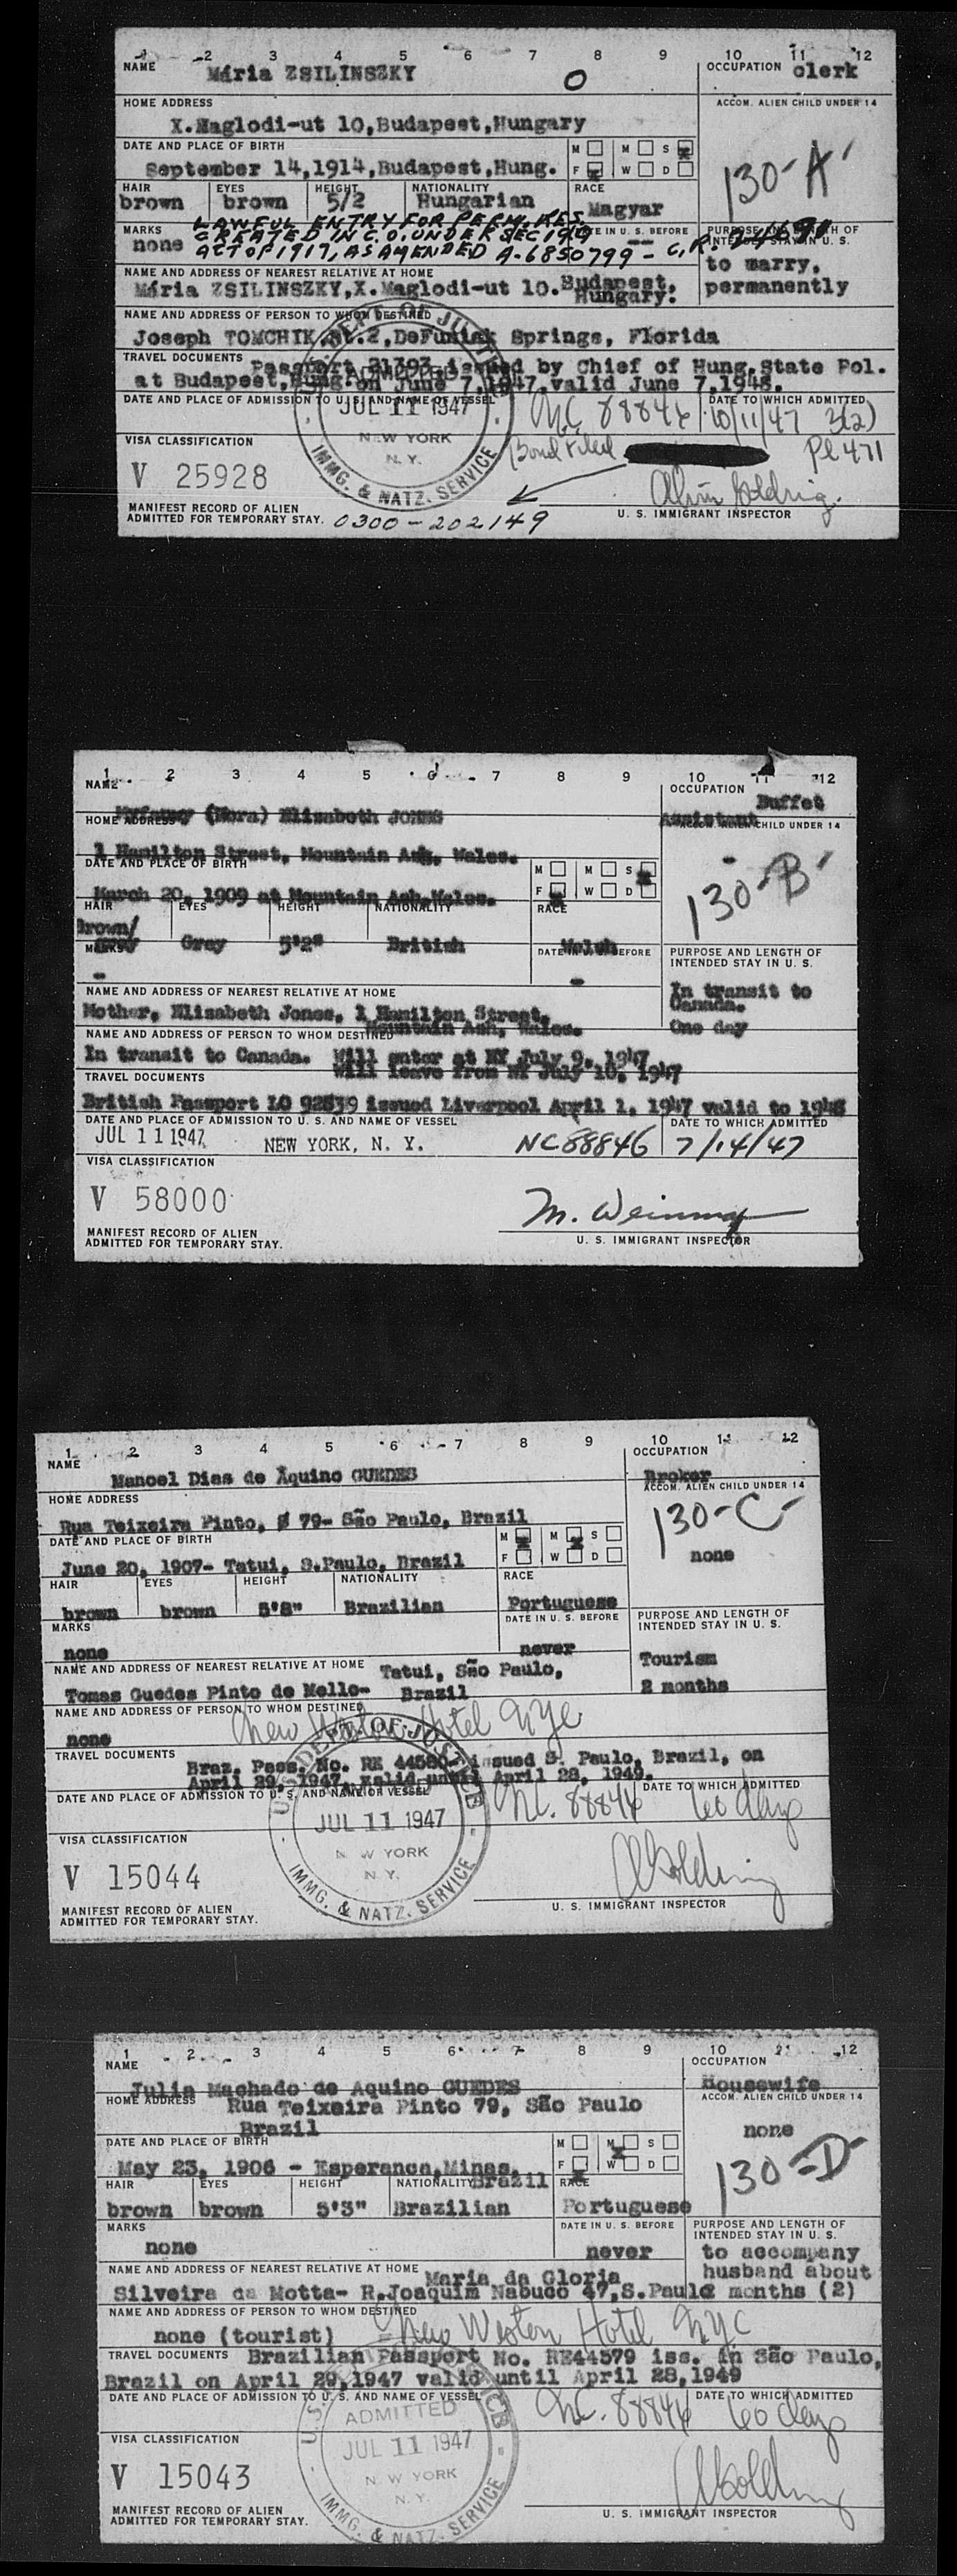 1 2 3 4 5 6 7 8 9 10 11 12
NAME Mária ZSILINSZKY O OCCUPATION clerk
HOME ADDRESS ACCOM. ALIEN CHILD UNDER 14
X.Maglodi-ut 10,Budapest,Hungary
DATE AND PLACE OF BIRTH M M S
September 14,1914,Budapest,Hung. F W D 130-A-
HAIR EYES HEIGHT NATIONALITY RACE
brown brown 5/2 Hungarian Magyar
LAWFUL ENTRY FOR PERM. RES.
MARKS CREATED IN C.O. UNDER SEC 19(c) DATE IN U. S. BEFORE PURPOSE AND LENGTH OF
none ACT OF 1917, AS AMENDED A-6850799 - C.R. INTENDED STAY IN U. S.
NAME AND ADDRESS OF NEAREST RELATIVE AT HOME to marry,
Mária ZSILINSZKY,X.Maglodi-ut 10.Budapest, Hungary. permanently
NAME AND ADDRESS OF PERSON TO WHOM DESTINED
Joseph TOMCHIK, Rt.2,DeFuniak Springs, Florida
TRAVEL DOCUMENTS Passport 21393 issued by Chief of Hung.State Pol.
at Budapest,Hung.on June 7,1947,valid June 7,1948.
DATE AND PLACE OF ADMISSION TO U. S. AND NAME OF VESSEL DATE TO WHICH ADMITTED
ADMITTED JUL 11 1947 NC 88846 10/11/47 3(2)
VISA CLASSIFICATION NEW YORK N. Y. Bond Filed PL 471
V 25928 IMMG. & NATZ. SERVICE
MANIFEST RECORD OF ALIEN
ADMITTED FOR TEMPORARY STAY. 0300-202149 U. S. IMMIGRANT INSPECTOR
1 2 3 4 5 6 7 8 9 10 11 12
NAME OCCUPATION Buffet
Myfanwy (Nora) Elizabeth JONES Assistant
HOME ADDRESS ACCOM. ALIEN CHILD UNDER 14
1 Hamilton Street, Mountain Ash, Wales. -
DATE AND PLACE OF BIRTH M M S
March 20, 1909 at Mountain Ash,Wales. F W D 130-B-
HAIR EYES HEIGHT NATIONALITY RACE
Brown/ Grey 5'2" British Welsh
MARKS DATE IN U. S. BEFORE PURPOSE AND LENGTH OF
INTENDED STAY IN U. S.
- - In transit to
NAME AND ADDRESS OF NEAREST RELATIVE AT HOME Canada.
Mother, Elizabeth Jones, 1 Hamilton Street, One day
NAME AND ADDRESS OF PERSON TO WHOM DESTINED Mountain Ash, Wales.
In transit to Canada. Will enter at NY July 9, 1947
Will leave from NY July 10, 1947
TRAVEL DOCUMENTS
British Passport LO 92839 issued Liverpool April 1, 1947 valid to 1948
DATE AND PLACE OF ADMISSION TO U. S. AND NAME OF VESSEL DATE TO WHICH ADMITTED
JUL 11 1947 NEW YORK, N. Y. NC88846 7/14/47
VISA CLASSIFICATION
V 58000 M.
MANIFEST RECORD OF ALIEN
ADMITTED FOR TEMPORARY STAY. U. S. IMMIGRANT INSPECTOR
1 2 3 4 5 6 7 8 9 10 11 12
NAME OCCUPATION
Manoel Dias de Aquino GUEDES Broker
HOME ADDRESS ACCOM. ALIEN CHILD UNDER 14
Rua Teixeira Pinto, # 79- São Paulo, Brazil 130-C-
DATE AND PLACE OF BIRTH M M S none
June 20, 1907- Tatui, S.Paulo, Brazil F W D
HAIR EYES HEIGHT NATIONALITY RACE
brown brown 5'8" Brazilian Portuguese
MARKS DATE IN U. S. BEFORE PURPOSE AND LENGTH OF
INTENDED STAY IN U. S.
none never Tourism
NAME AND ADDRESS OF NEAREST RELATIVE AT HOME Tatui, São Paulo, 2 months
Tomas Guedes Pinto de Mello- Brazil
NAME AND ADDRESS OF PERSON TO WHOM DESTINED
none New Weston Hotel NYC
TRAVEL DOCUMENTS Braz. Pass. No. RE 44580- issued S. Paulo, Brazil, on
April 29, 1947, valid until April 28, 1949.
DATE AND PLACE OF ADMISSION TO U. S. AND NAME OF VESSEL DATE TO WHICH ADMITTED
JUL 11 1947 NC. 88846 60 days
VISA CLASSIFICATION NEW YORK N. Y.
V 15044 IMMG. & NATZ. SERVICE
MANIFEST RECORD OF ALIEN
ADMITTED FOR TEMPORARY STAY. U. S. IMMIGRANT INSPECTOR
1 2 3 4 5 6 7 8 9 10 11 12
NAME OCCUPATION
Julia Machado de Aquino GUEDES Housewife
HOME ADDRESS Rua Teixeira Pinto 79, São Paulo ACCOM. ALIEN CHILD UNDER 14
Brazil none
DATE AND PLACE OF BIRTH M M S
May 23, 1906 - Esperança,Minas, Brazil F W D 130-D-
HAIR EYES HEIGHT NATIONALITY RACE
brown brown 5'3" Brazilian Portuguese
MARKS DATE IN U. S. BEFORE PURPOSE AND LENGTH OF
INTENDED STAY IN U. S.
none never to accompany
NAME AND ADDRESS OF NEAREST RELATIVE AT HOME Maria da Gloria husband about
Silveira da Motta- R.Joaquim Nabuco 47,S.Paulo 2 months (2)
NAME AND ADDRESS OF PERSON TO WHOM DESTINED
none (tourist) New Weston Hotel NYC
TRAVEL DOCUMENTS Brazilian Passport No. RE44579 iss. in São Paulo,
Brazil on April 29,1947 valid until April 28,1949
DATE AND PLACE OF ADMISSION TO U. S. AND NAME OF VESSEL DATE TO WHICH ADMITTED
ADMITTED NC. 88846 60 days
VISA CLASSIFICATION JUL 11 1947
V 15043 NEW YORK N. Y.
MANIFEST RECORD OF ALIEN
ADMITTED FOR TEMPORARY STAY. IMMG. & NATZ. SERVICE U. S. IMMIGRANT INSPECTOR